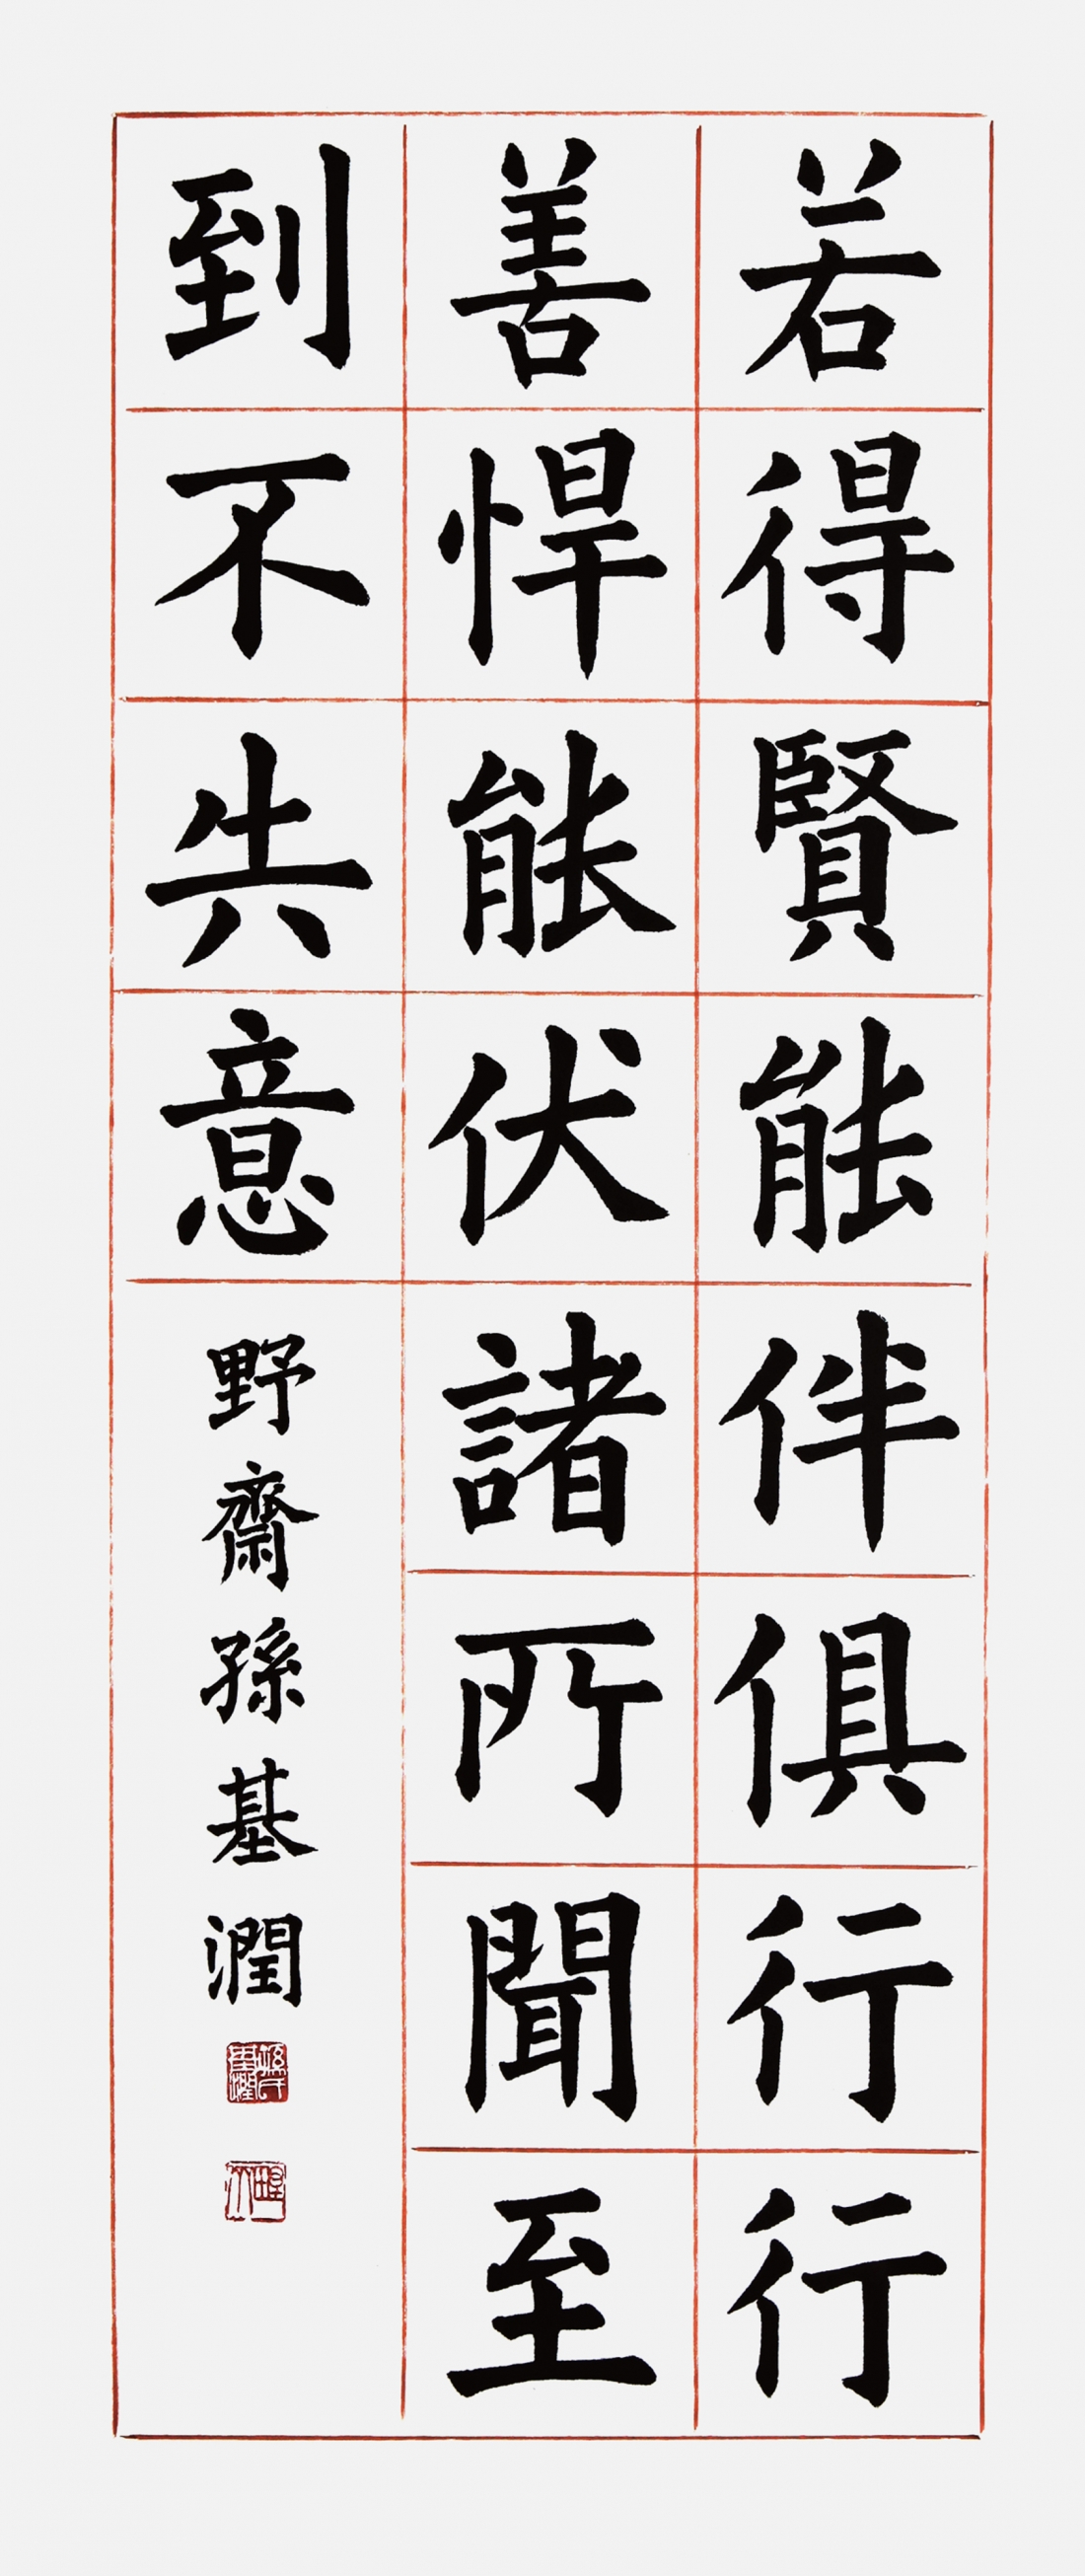 若得賢能伴俱行行
善悍能伏諸所聞至
到不失意
野齋孫基潤